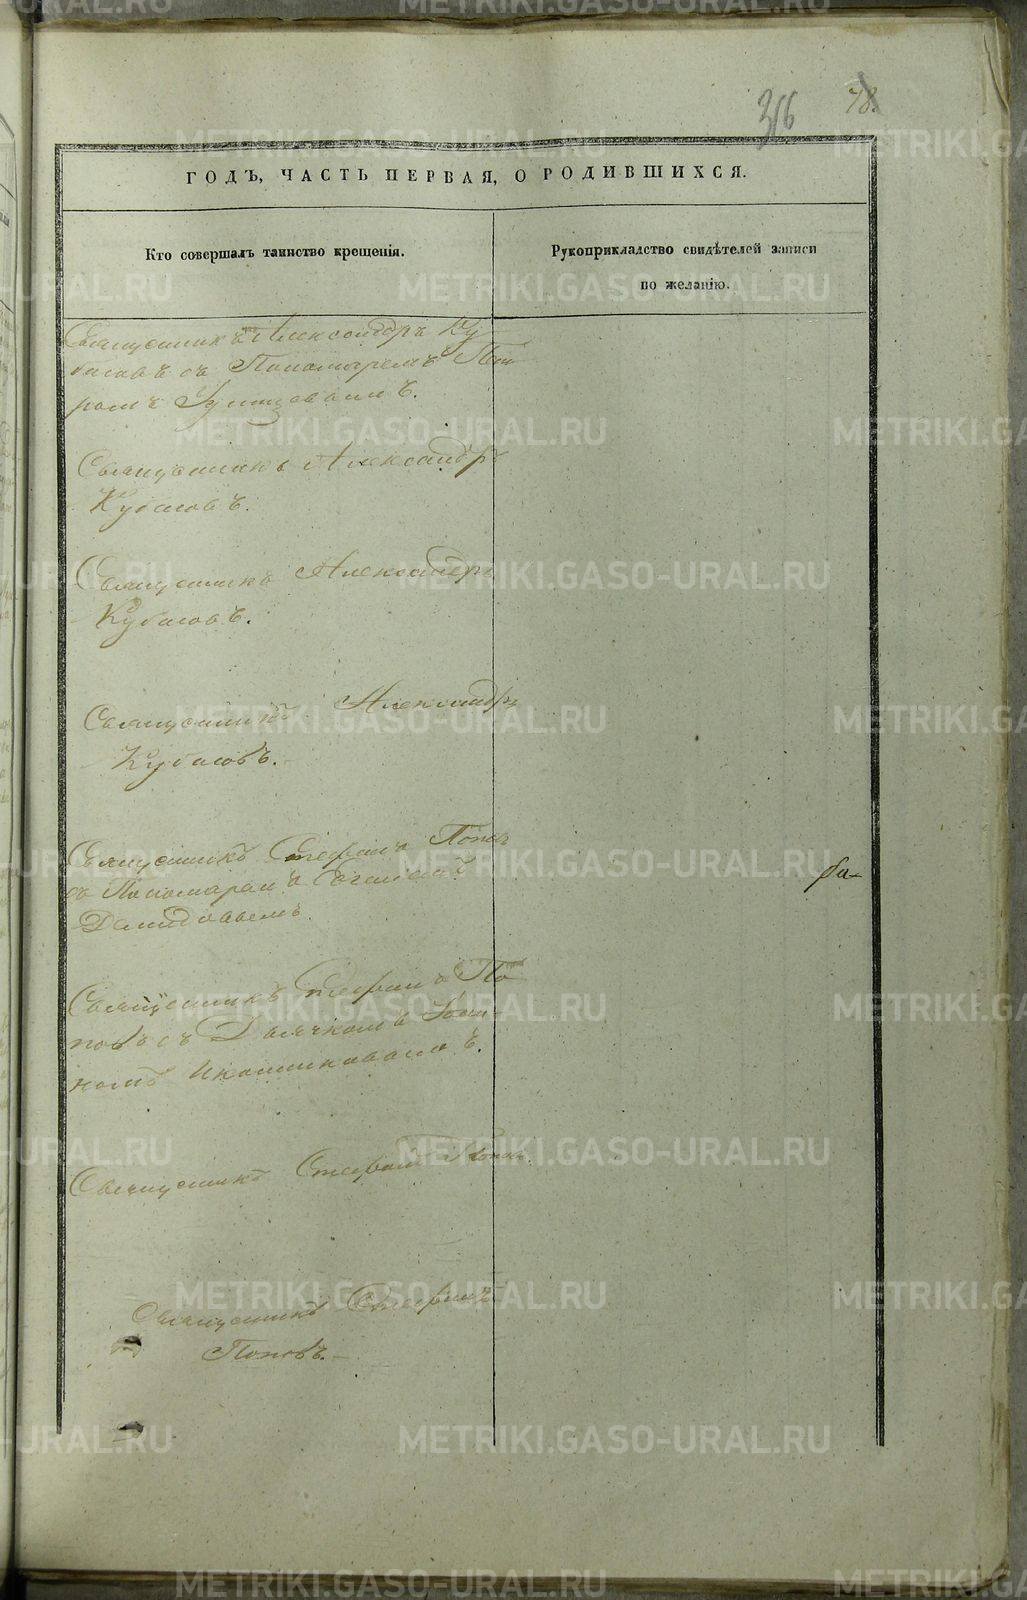 316 78
ГОДЪ, ЧАСТЬ ПЕРВАЯ, О РОДИВШИХСЯ.
Кто совершалъ таинство крещенія.
Рукоприкладство свидѣтелей записи
по желанію.
Священникъ Александръ Ку
басовъ съ Пономаремъ Пет
ромъ
Священникъ Александръ
Кубасовъ.
Священникъ Александръ
Кубасовъ.
Священникъ Александръ
Кубасовъ.
Священникъ Стефанъ Поповъ
съ Пономаремъ
Священникъ Стефанъ По
повъ съ Дьячкомъ Іоан
номъ Иконниковымъ.
Священникъ Стефанъ Поповъ
Священникъ Стефанъ
Поповъ.
METRIKI.GASO-URAL.RU